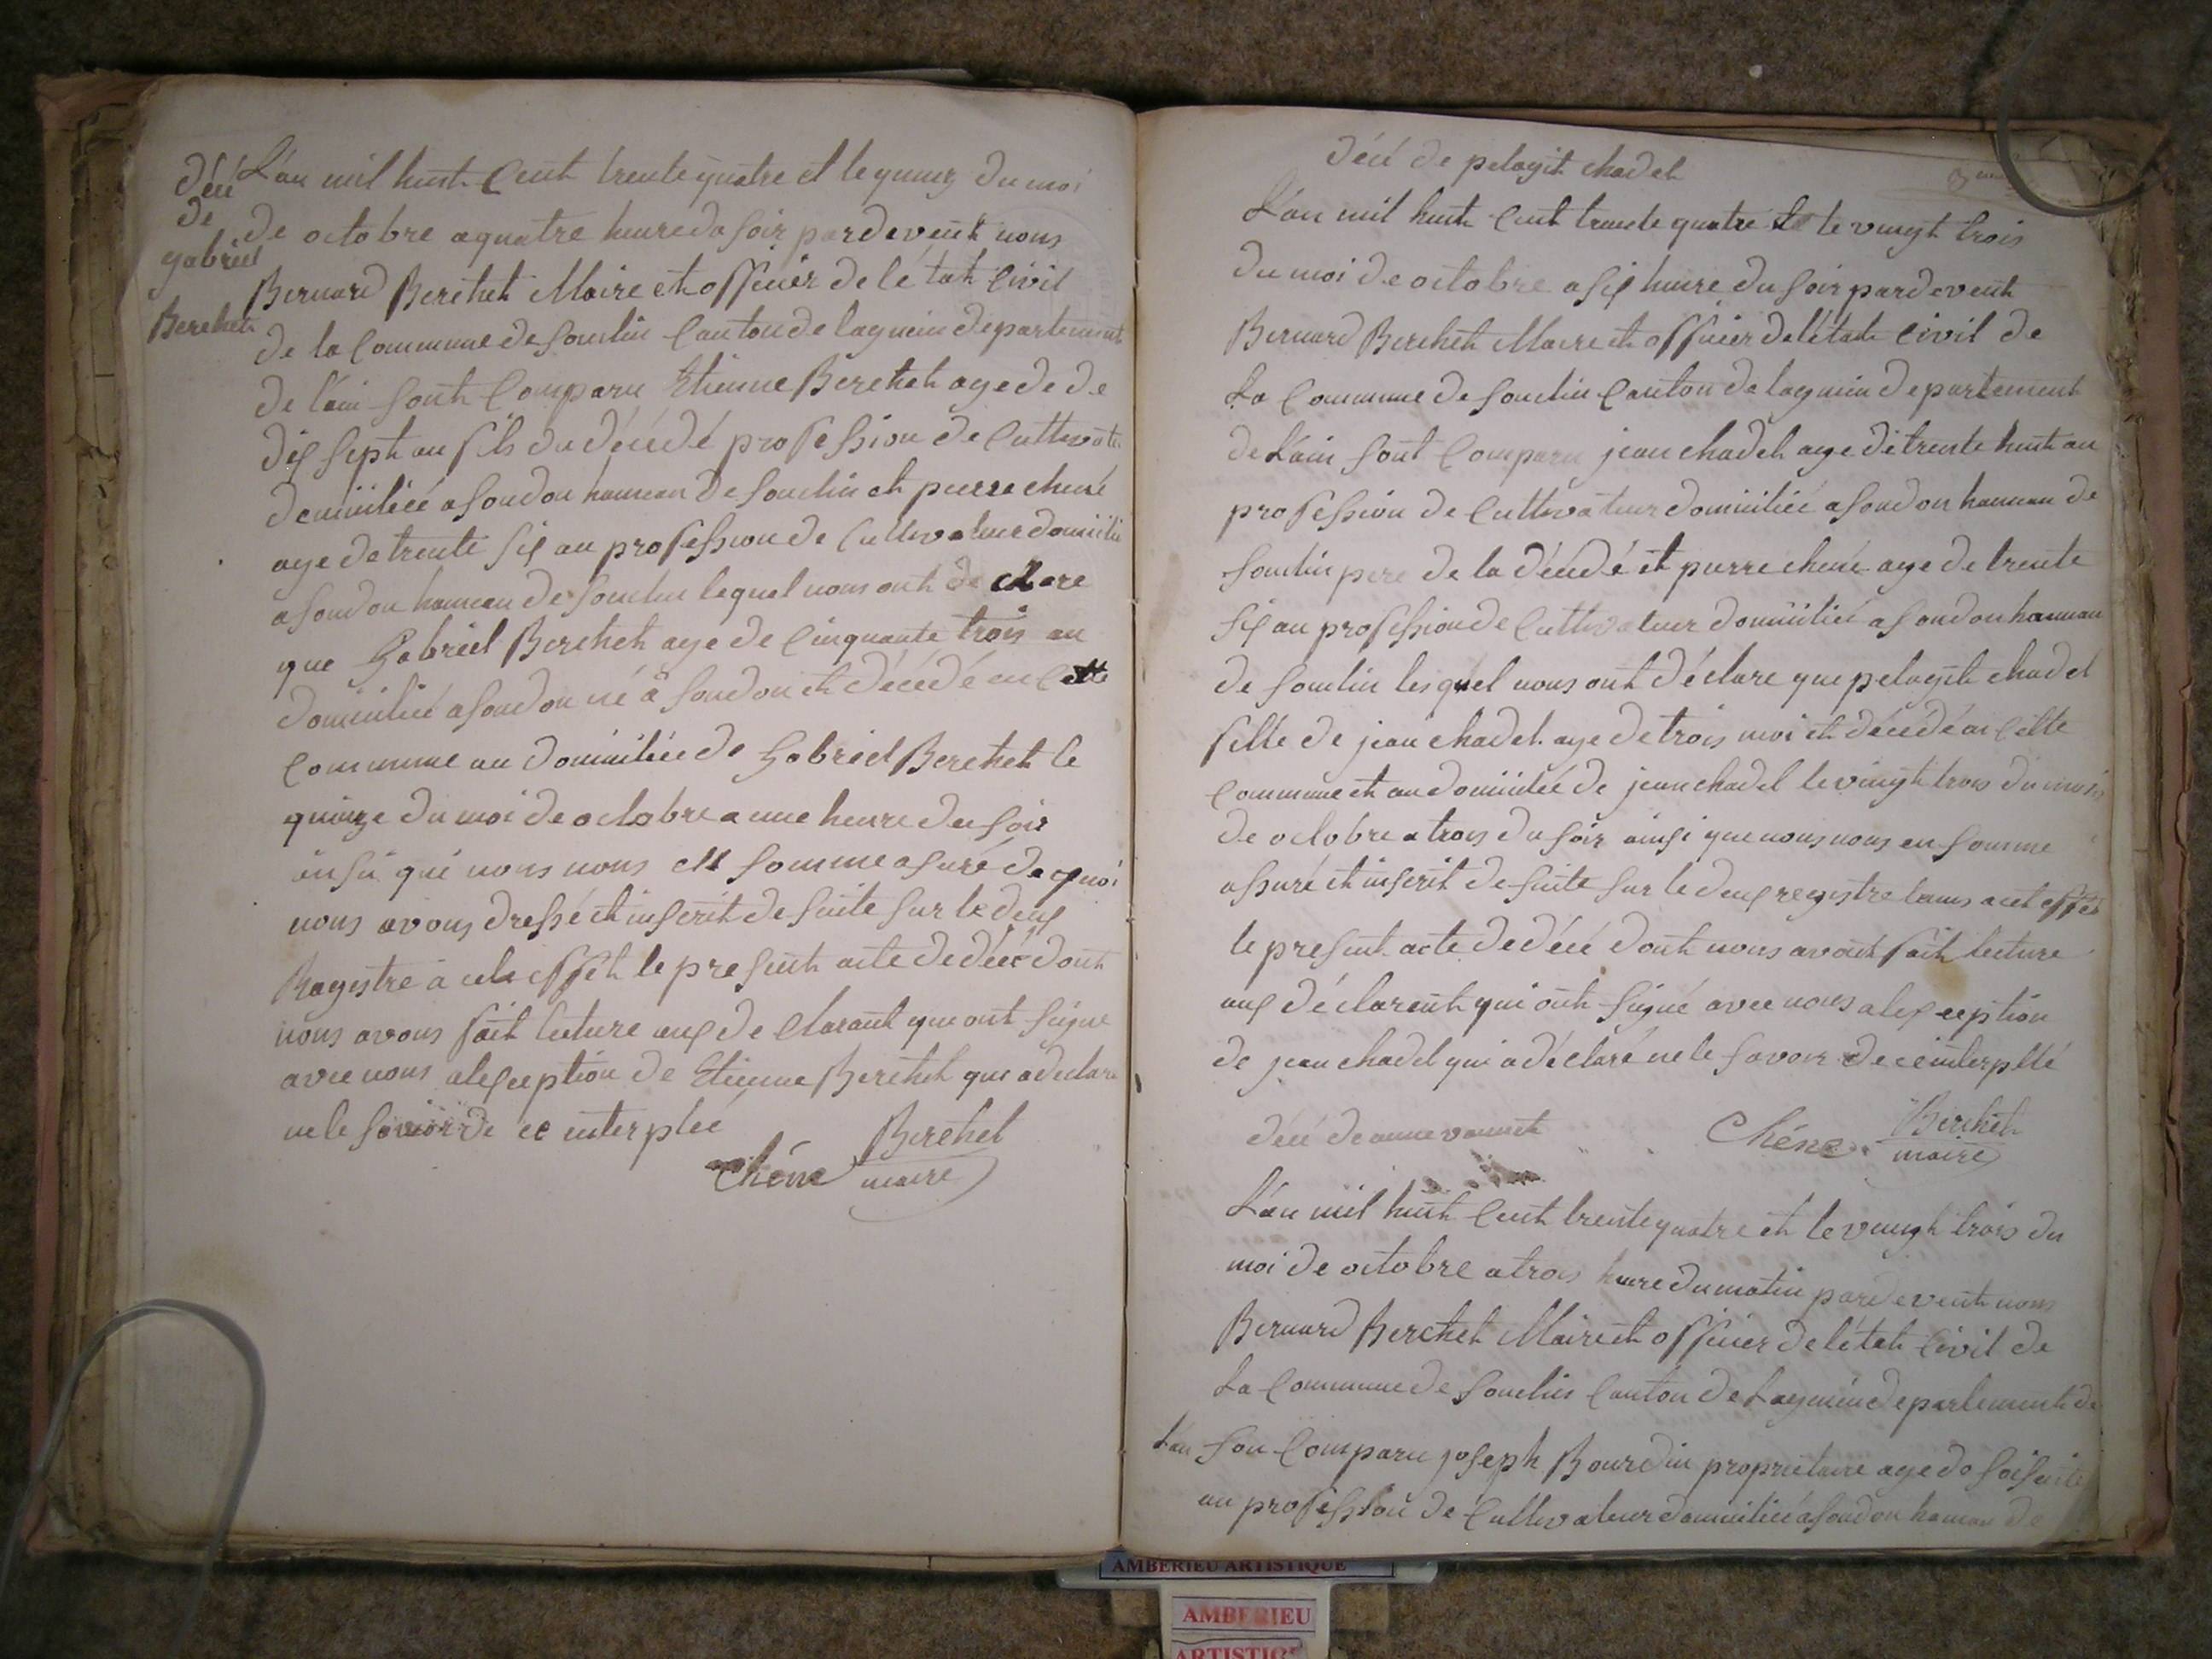 décé
de
gabriel
Berchet
L'an mil huit Cent trente quatre et le quinz du moi
de octobre a quatre heure do soir pardevent nous
Bernard Berchet Maire et officier de l'é tat Civil
de la Commune de Souclin Canton de lagnieu departement
de l'ain sont Comparu Etienne Berchet age de de
dix sept an fils du décédé profession de Cultivate
domicilieé a soudon hameau de Souclin et pierre chené
age de trente six an profession de Cultivateur domicilie
a soudon hameau de Souclin lequel nous ont de clare
que Gabriel Berchet age de Cinquante trois an
domicilieé a soudon né a soudon et décédé en Cette
Commune au domicilieé de Gabriel Berchet le
quinze du moi de octobre a une heure du soir
insii que nous nous en somme asuré de quoi
nous avons dressé et inscrit de suite sur le deux
Ragistre a cela effet le present acte de décé dont
nous avons fait lecture aux de clarant que ont signe
avec nous alexception de Etienne Berchet qui a declare
ne le savoir de ce interplée
Berchet
Chêne maire
décé de pelagit chadel
L'an mil huit Cent trante quatre et le vingt trois
du moi de octobre a six heure du soir pardevent
Bernard Berchet Maire et officier de l'état Civil de
La Commune de Souclin Canton de lagnieu departement
de L'ain sont Comparu jean chadel age de trente huit an
profession de Cultivateur domicilieé a soudon hameau de
Souclin pere de la décédé et pierre chené age de trente
six an profession de Cultivateur domicilieé a soudon hameau
de Souclin lesquel nous ont déclare que pelagit chadel
fille de jean chadel age de trois moi et décédé en Cette
Commune et au domicilieé de jean chadel le vingt trois du mois
de octobre a trois du soir ainsi que nous nous en somme
assuré et inscrit de suite sur le deux registre tenus a cet effet
le present acte de décé dont nous avont fait lecture
aux déclarent qui ont signé avec nous alexception
de jean chadel qui a déclaré ne le savoir de ce interpllé
Chêne Berchet
maire
décé de anne vannet
L'an mil huit Cent trente quatre et le vingt trois du
moi de octobre a trois heure du matin pardevent nous
Bernard Berchet Maire et officier de l'état Civil de
La Commune de Souclin Canton de Lagnieu departement de
L'ain son Comparu joseph Bourdin proprietaire age do soisente
an profession de Cultivateur domicilieé a soudon hamau de
AMBERIEU ARTISTIQUE
AMBERIEU
ARTISTIQ